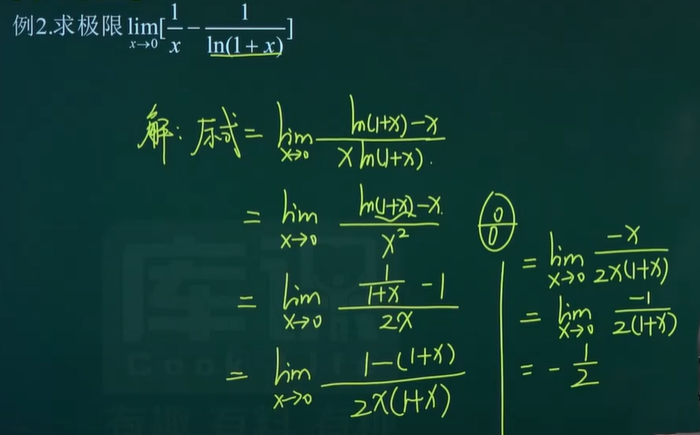 例2.求极限 lim x→0 [1/x − 1/ln(1+x)]
解: 原式 = lim x→0 (ln(1+x)−x)/(x ln(1+x)).
= lim x→0 (ln(1+x)−x)/x² (0/0)
= lim x→0 (1/(1+x) − 1)/2x
= lim x→0 (1−(1+x))/(2x(1+x))
= lim x→0 −x/(2x(1+x))
= lim x→0 −1/(2(1+x))
= −1/2
库课